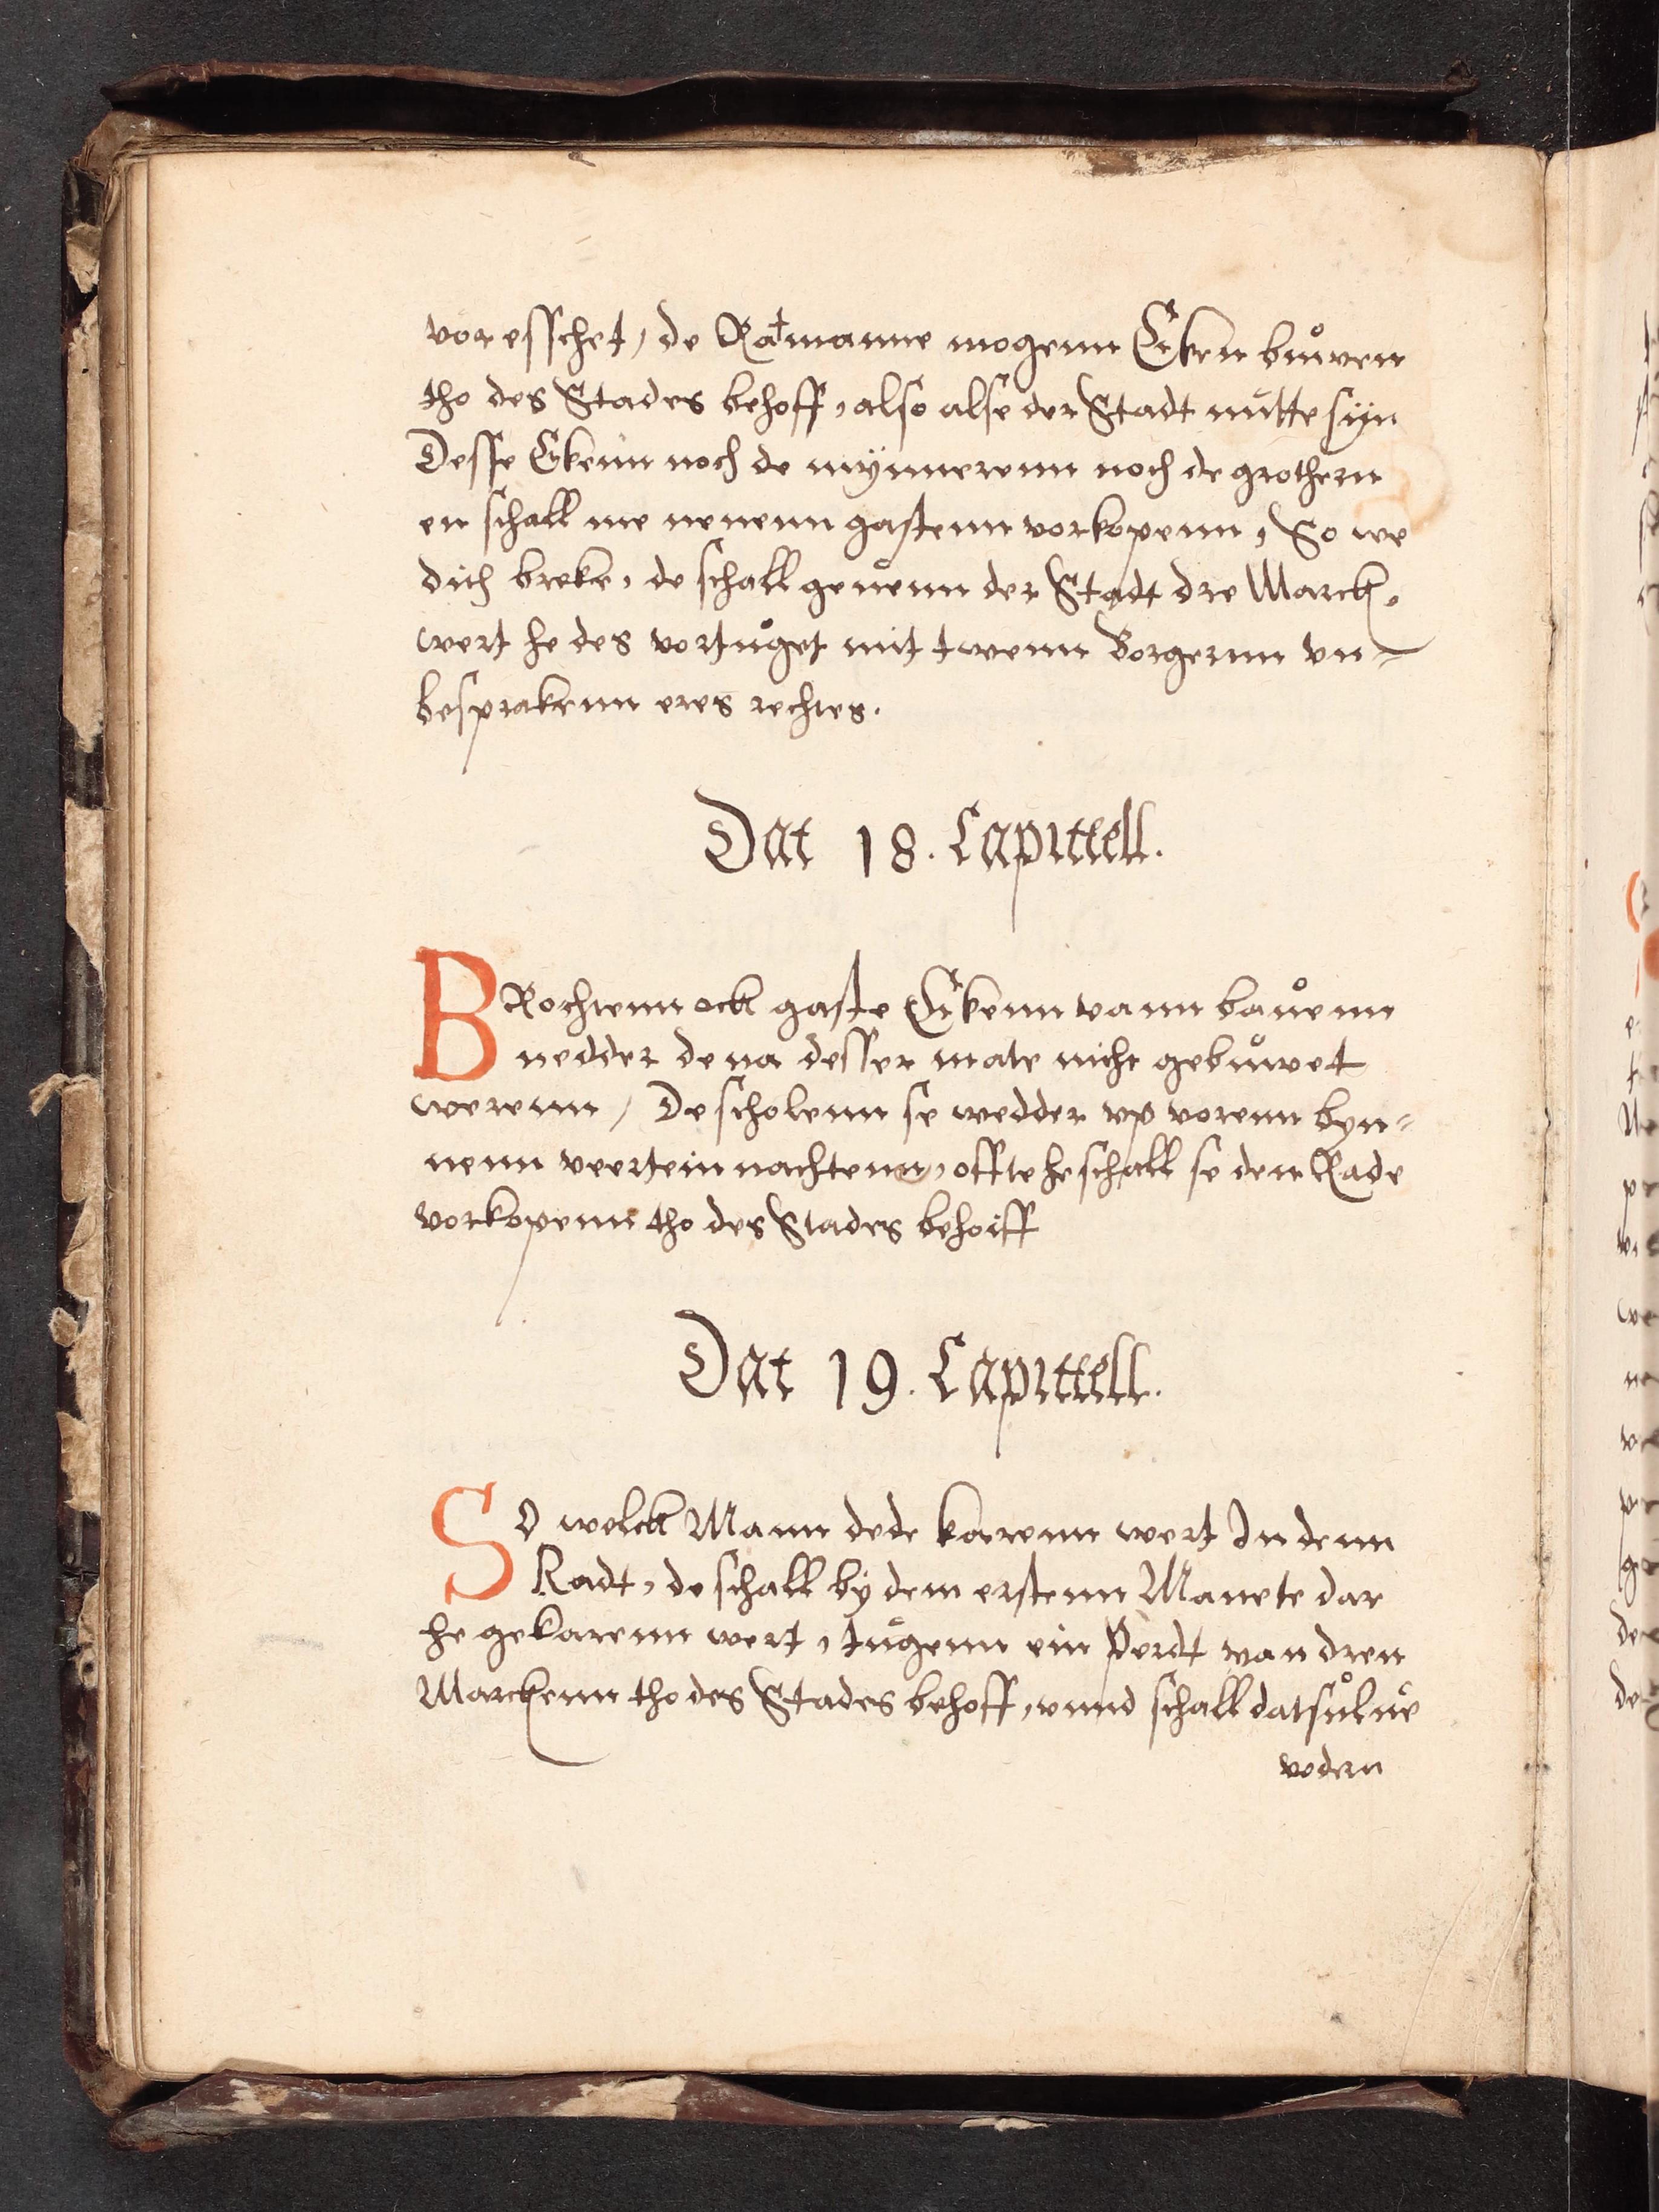 vor esschet, de Ratmanne mogenn Eken buwen
tho des Stades behoff, also alse der Stadt nutte syn
Desse Ekenn noch de mynnerenn noch de grothern
en schall me nenenn gastenn vorkopenn, So we
dith breke, de schall geuenn der Stadt dre Marck,
wert he des vortuget mit twenn Borgernn vn-
besprakenn eres rechtes.
Dat 18. Capittell.
BRochtenn ock gaste Eikenn vann bauenn
nedder de na desser mate nicht gebuwet
werenn, De scholenn se wedder vp vorenn byn-
nenn veertein nachtenn, offte he schall se dem Rade
vorkopenn tho des Stades behoiff
Dat 19. Capittell.
SO welck Mann dede karenn wert Jn denn
Radt, de schall by dem erstenn Manete dar
he gekarenn wert, tugenn ein Perdt van dren
Marckenn tho des Stades behoff, vnnd schall datsulue
vodern